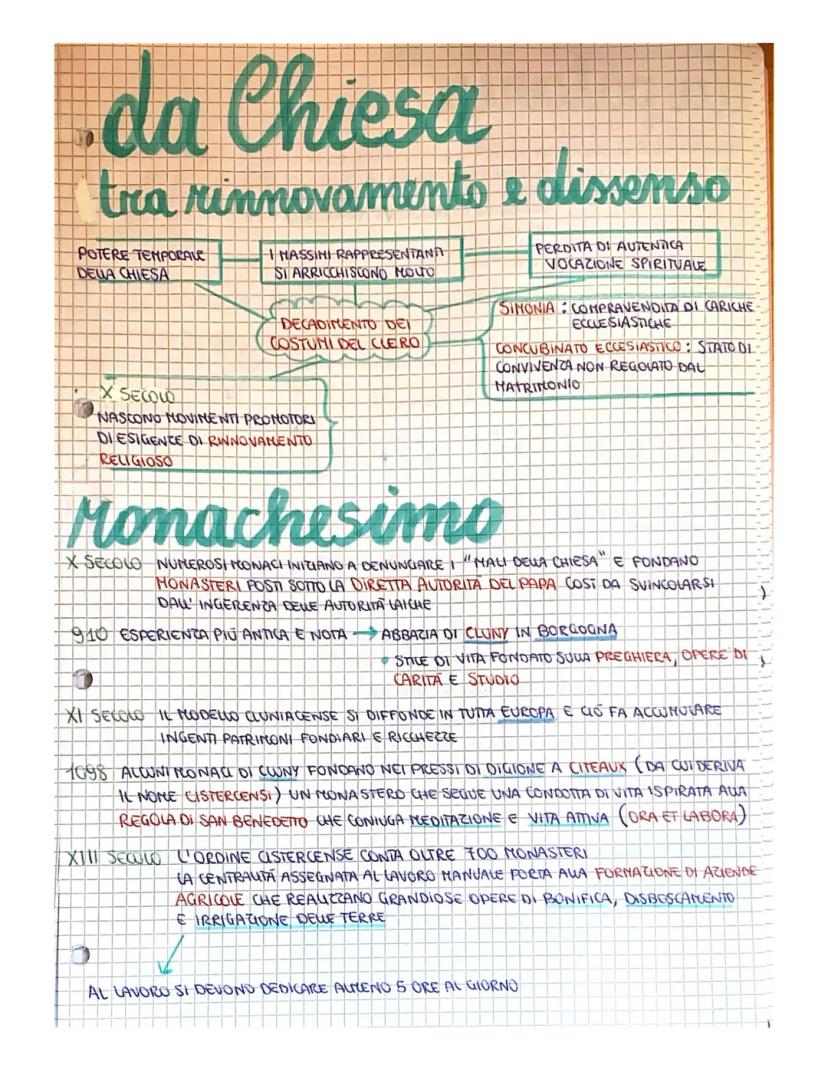 la Chiesa
tra rinnovamento e dissenso
POTERE TEMPORALE
DELLA CHIESA
I MASSIMI RAPPRESENTANTI
SI ARRICCHISCONO MOLTO
PERDITA DI AUTENTICA
VOCAZIONE SPIRITUALE
DECADIMENTO DEI
COSTUMI DEL CLERO
SIMONIA : COMPRAVENDITA DI CARICHE
ECCLESIASTICHE
CONCUBINATO ECCLESIASTICO : STATO DI
CONVIVENZA NON REGOLATO DAL
MATRIMONIO
X SECOLO
NASCONO MOVIMENTI PROMOTORI
DI ESIGENZE DI RINNOVAMENTO
RELIGIOSO
Monachesimo
X SECOLO NUMEROSI MONACI INIZIANO A DENUNCIARE I "MALI DELLA CHIESA" E FONDANO
MONASTERI POSTI SOTTO LA DIRETTA AUTORITÀ DEL PAPA COSÌ DA SVINCOLARSI
DALL'INGERENZA DELLE AUTORITÀ LAICHE
910 ESPERIENZA PIÙ ANTICA E NOTA → ABBAZIA DI CLUNY IN BORGOGNA
• STILE DI VITA FONDATO SULLA PREGHIERA, OPERE DI
CARITÀ E STUDIO
XI SECOLO IL MODELLO CLUNIACENSE SI DIFFONDE IN TUTTA EUROPA E CIÒ FA ACCUMULARE
INGENTI PATRIMONI FONDIARI E RICCHEZZE
1098 ALCUNI MONACI DI CLUNY FONDANO NEI PRESSI DI DIGIONE A CITEAUX (DA CUI DERIVA
IL NOME CISTERCENSI) UN MONASTERO CHE SEGUE UNA CONDOTTA DI VITA ISPIRATA ALLA
REGOLA DI SAN BENEDETTO CHE CONIUGA MEDITAZIONE E VITA ATTIVA (ORA ET LABORA)
XIII SECOLO L'ORDINE CISTERCENSE CONTA OLTRE 700 MONASTERI
LA CENTRALITÀ ASSEGNATA AL LAVORO MANUALE PORTA ALLA FORMAZIONE DI AZIENDE
AGRICOLE CHE REALIZZANO GRANDIOSE OPERE DI BONIFICA, DISBOSCAMENTO
E IRRIGAZIONE DELLE TERRE
AL LAVORO SI DEVONO DEDICARE ALMENO 5 ORE AL GIORNO